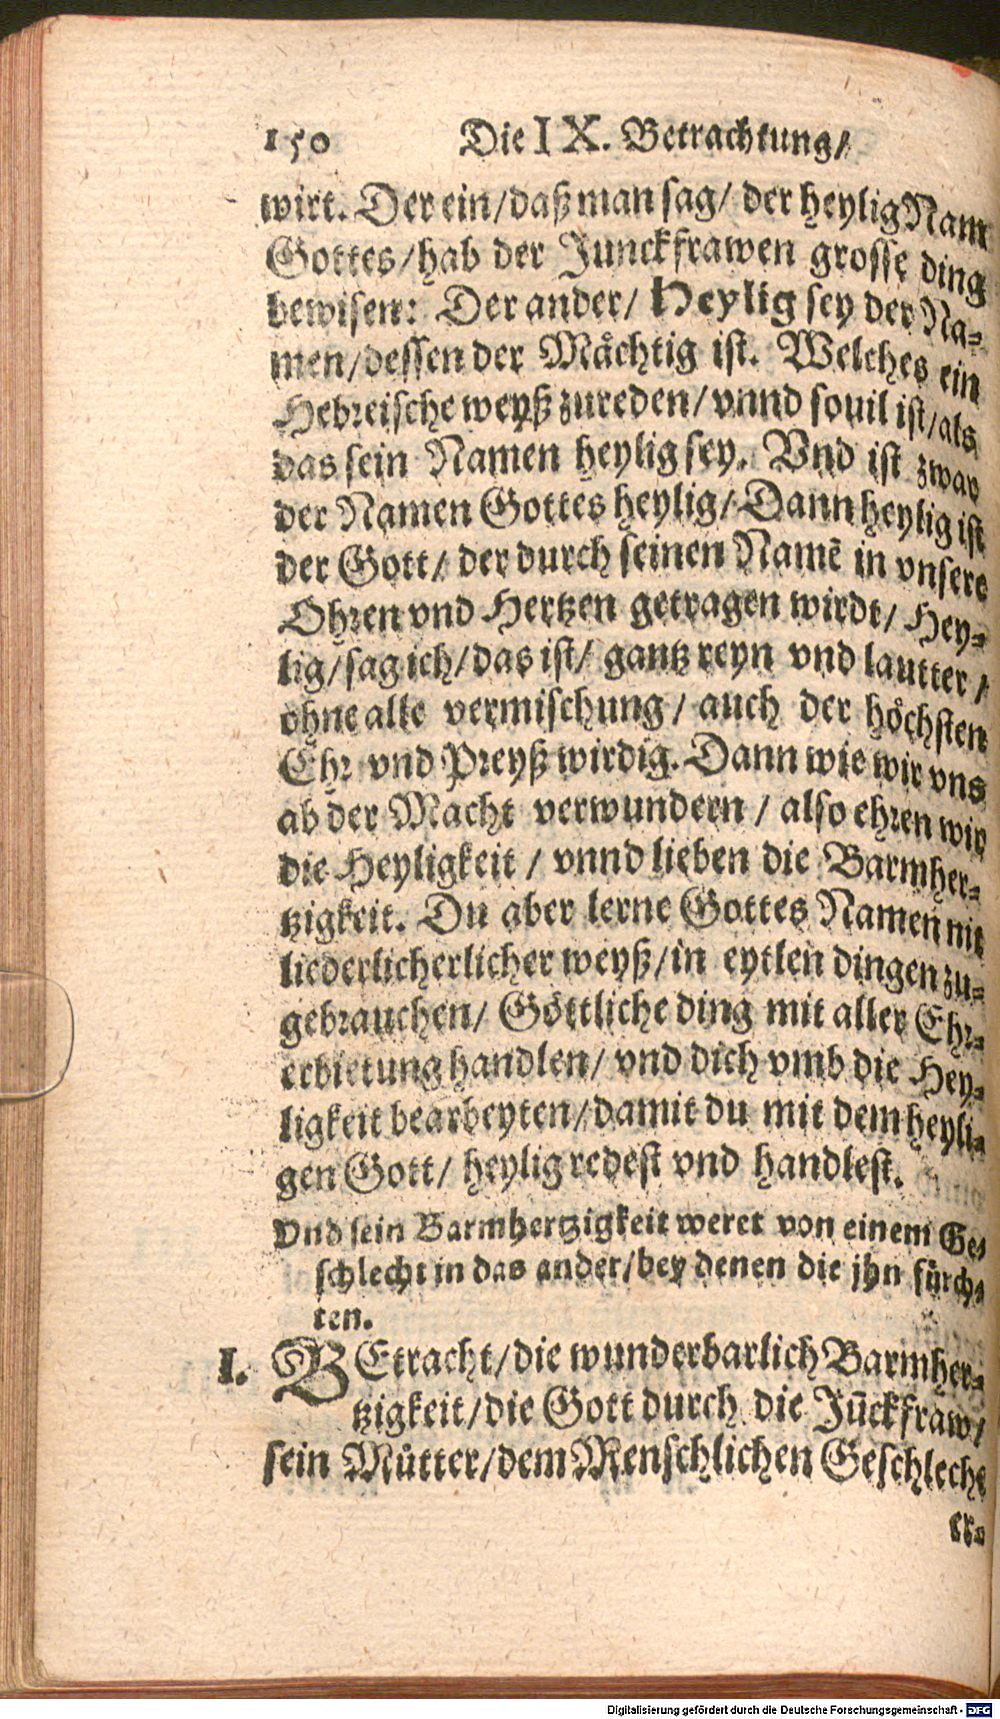 150 Die IX. Betrachtung/
wirt. Der ein/daß man sag/ der heylig Nam
Gottes/hab der Junckfrawen grosse ding
bewisen: Der ander/ Heylig sey der Na-
men/dessen der Mächtig ist. Welches ein
Hebreische weyß zureden/vnnd souil ist/als
das sein Namen heylig sey. Vnd ist zwar
der Namen Gottes heylig/Dann heylig ist
der Gott/ der durch seinen Namē in vnsere
Ohren vnd Hertzen getragen wirdt/ Hey-
lig/sag ich/das ist/ gantz reyn vnd lautter/
ohne alle vermischung/ auch der höchsten
Ehr vnd Preyß wirdig. Dann wie wir vns
ab der Macht verwundern / also ehren wir
die Heyligkeit / vnnd lieben die Barmher-
tzigkeit. Du aber lerne Gottes Namen nit
liederlicherlicher weyß/in eytlen dingen zu-
gebrauchen/ Göttliche ding mit aller Ehr-
erbietung handlen/ vnd dich vmb die Hey-
ligkeit bearbeyten/damit du mit dem heyli-
gen Gott/ heylig redest vnd handlest.
Vnd sein Barmhertzigkeit weret von einem Ge-
schlecht in das ander/bey denen die jhn fürch-
ten.
I. BEtracht/die wunderbarlich Barmher-
tzigkeit/die Gott durch die Jūckfraw/
sein Můtter/dem Menschlichen Geschlecht
er-
Digitalisierung gefördert durch die Deutsche Forschungsgemeinschaft - DFG